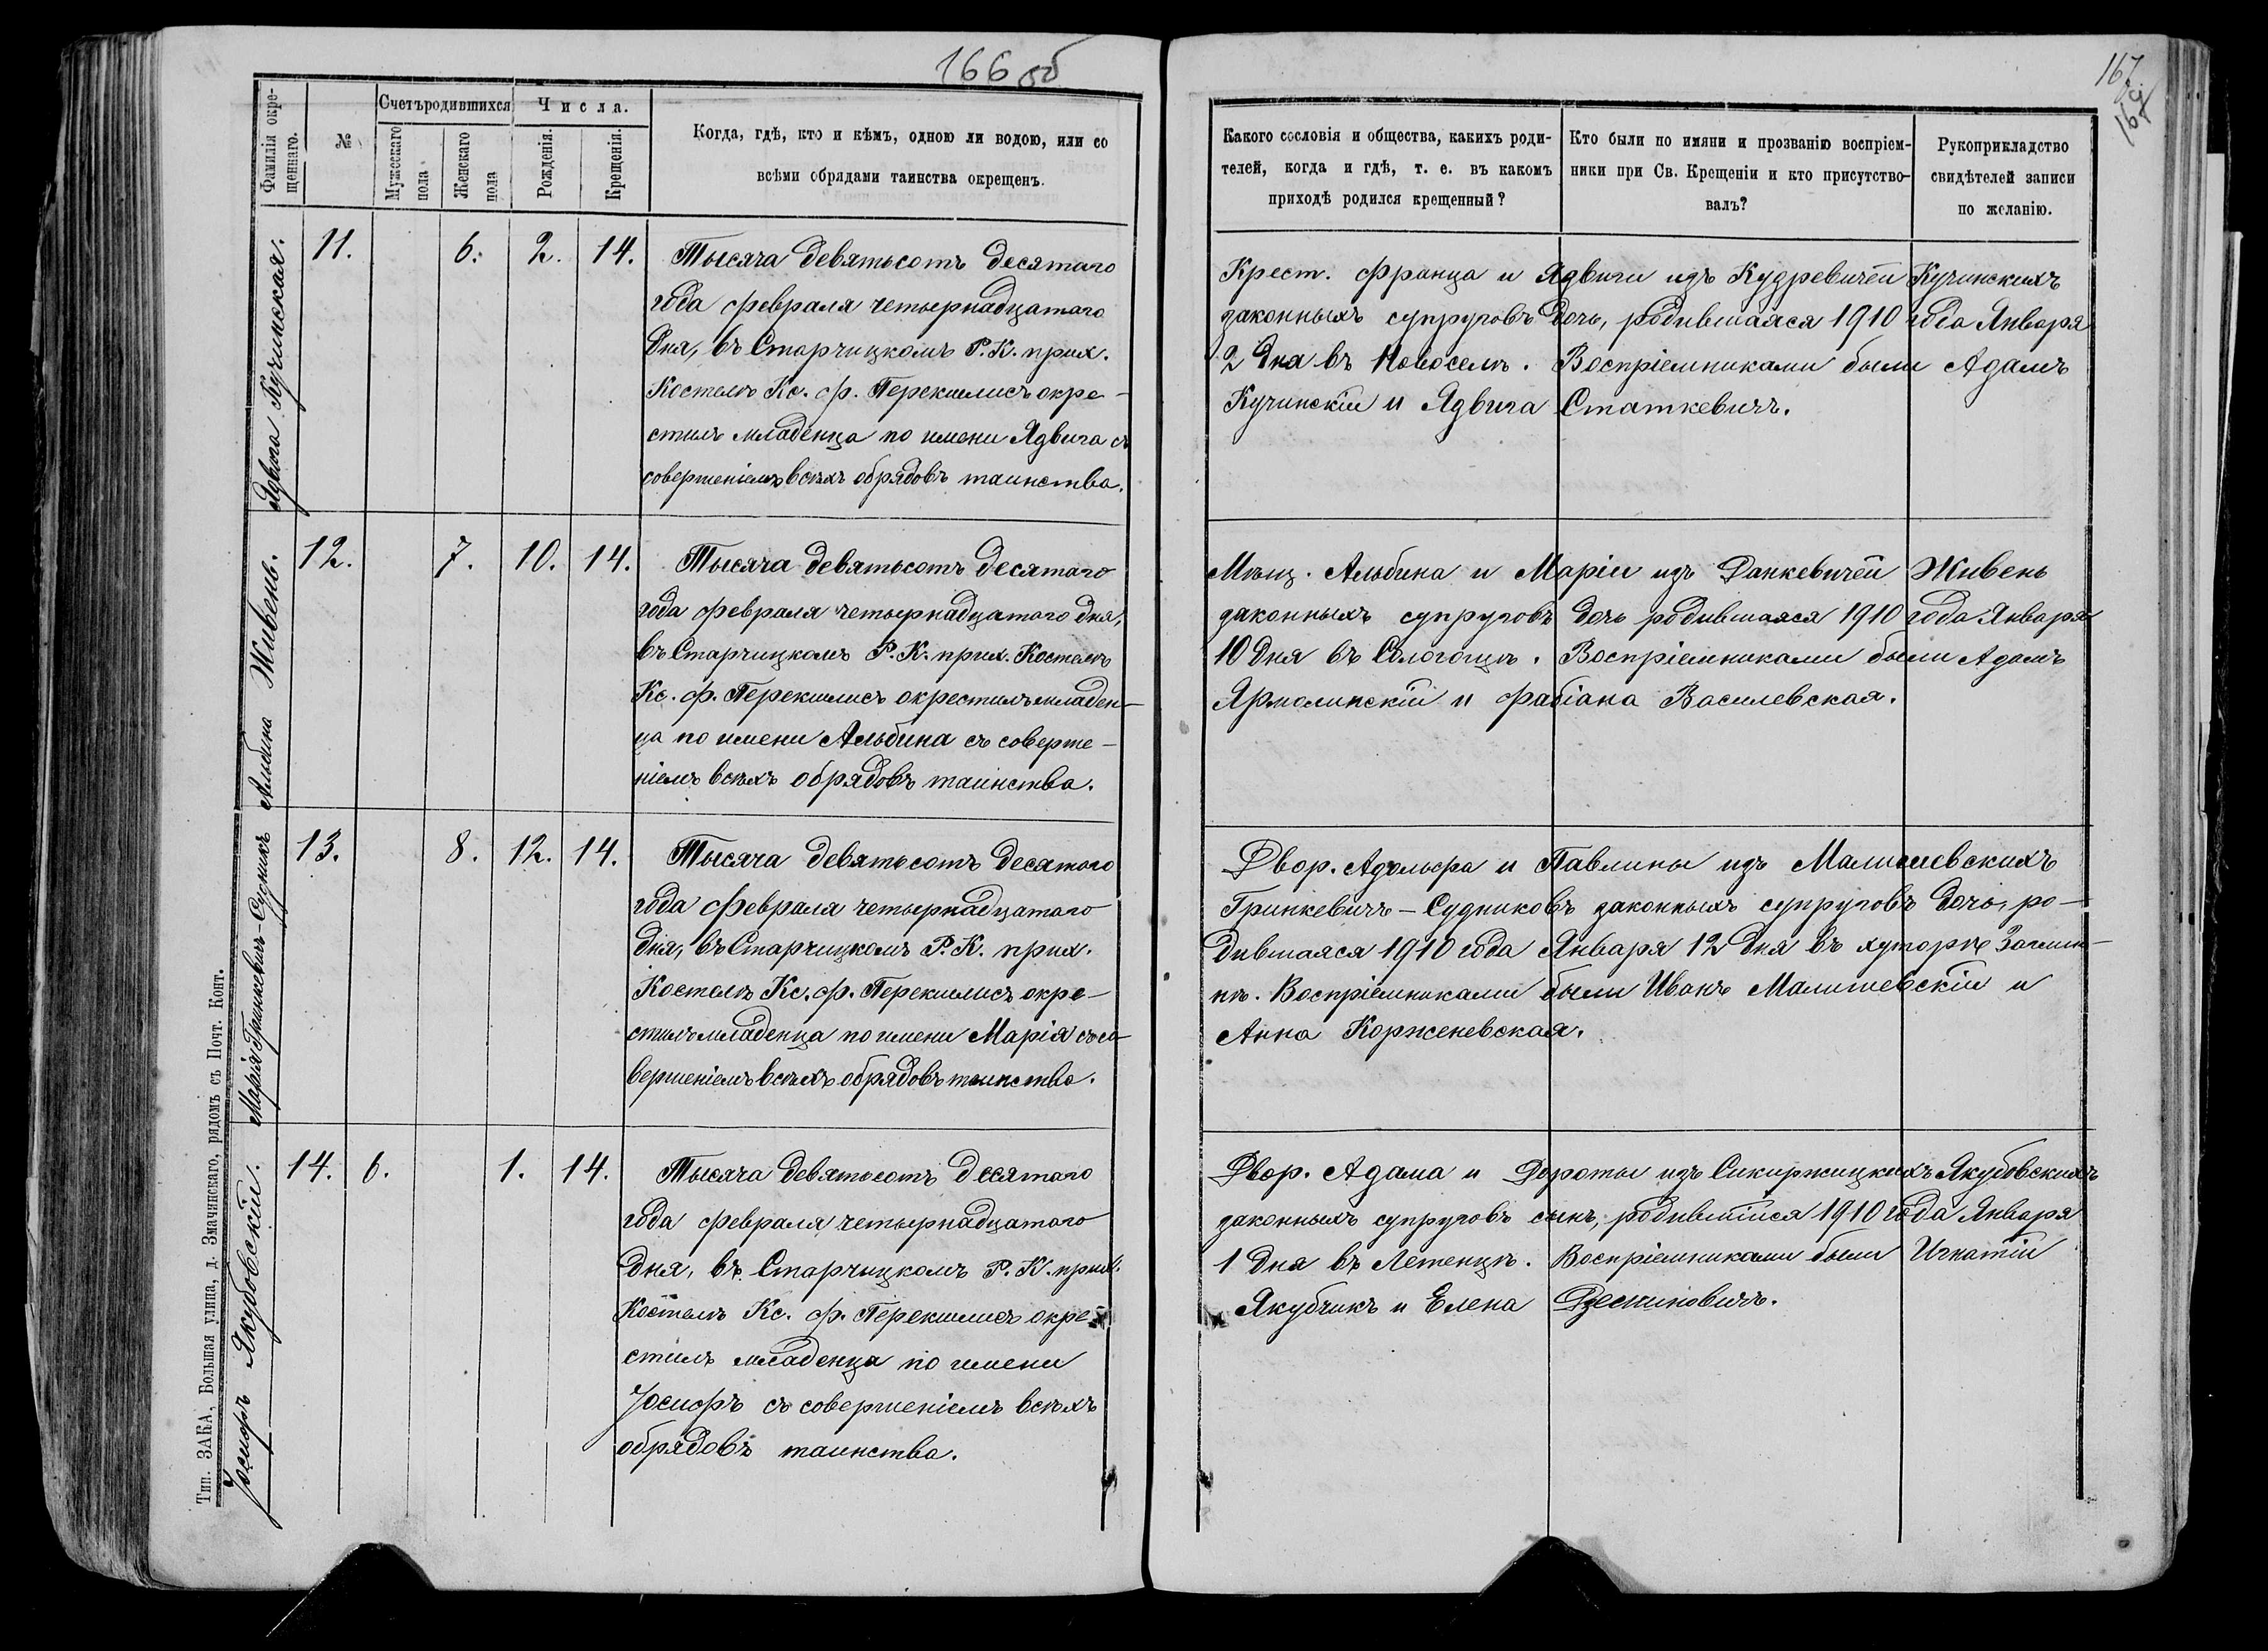 166 об
Фамилія окре-
щеннаго.
№
Счетъ родившихся
Мужескаго
пола
Женскаго
пола
Числа.
Рожденія.
Крещенія.
Когда, гдѣ, кто и кѣмъ, одною ли водою, или со
всѣми обрядами таинства окрещенъ.
Ядвига Кучинская.
11.
6.
2.
14.
Тысяча девятьсотъ десятаго
года февраля четырнадцатаго
дня, въ Старчицкомъ Р. К. прих.
Костелѣ Кс. Ф. Перекшлисъ окре-
стилъ младенца по имени Ядвига съ
совершеніемъ всѣхъ обрядовъ таинства.
Альбина Живень.
12.
7.
10.
14.
Тысяча девятьсотъ десятаго
года февраля четырнадцатаго дня,
въ Старчицкомъ Р. К. прих. Костелѣ
Кс. Ф. Перекшлисъ окрестилъ младен-
ца по имени Альбина съ соверше-
ніемъ всѣхъ обрядовъ таинства.
Марія Гринкевичъ-Судникъ
13.
8.
12.
14.
Тысяча девятьсотъ десятаго
года февраля четырнадцатаго
дня, въ Старчицкомъ Р. К. прих.
Костелѣ Кс. Ф. Перекшлисъ окре-
стилъ младенца по имени Марія съ со-
вершеніемъ всѣхъ обрядовъ таинства.
Іосифъ Якубовскій.
14.
6.
1.
14.
Тысяча девятьсотъ десятаго
года февраля четырнадцатаго
дня, въ Старчицкомъ Р. К. прих.
Костелѣ Кс. Ф. Перекшлисъ окре-
стилъ младенца по имени
Іосифъ съ совершеніемъ всѣхъ
обрядовъ таинства.
Тип. ЗАКА, Большая улица, д. Змачинскаго, рядомъ съ Почт. Конт.
167
Какого сословія и общества, какихъ роди-
телей, когда и гдѣ, т. е. въ какомъ
приходѣ родился крещенный?
Кто были по имяни и прозванію воспріем-
ники при Св. Крещеніи и кто присутство-
валъ?
Рукоприкладство
свидѣтелей записи
по желанію.
Крест. Франца и Ядвиги изъ Кудревичей Кучинскихъ
законныхъ супруговъ дочь, родившаяся 1910 года Января
2 дня въ Новоселѣ. Воспріемниками были Адамъ
Кучинскій и Ядвига Статкевичъ.
Мѣщ. Альбина и Маріи изъ Ранкевичей Живень
законныхъ супруговъ дочь родившаяся 1910 года Января
10 дня въ Сологощѣ. Воспріемниками были Адамъ
Ярмолинскій и Фабіана Василевская.
Двор. Адольфа и Павлины изъ Малишевскихъ
Гринкевичъ-Судниковъ законныхъ супруговъ дочь, ро-
дившаяся 1910 года Января 12 дня въ хуторѣ
Воспріемниками были Иванъ Малишевскій и
Анна Корженевская.
Двор. Адама и Дороты изъ Сикиржицкихъ Якубовскихъ
законныхъ супруговъ сынъ, родившійся 1910 года Января
1 дня въ Летенцѣ. Воспріемниками были Игнатій
Якубчикъ и Елена